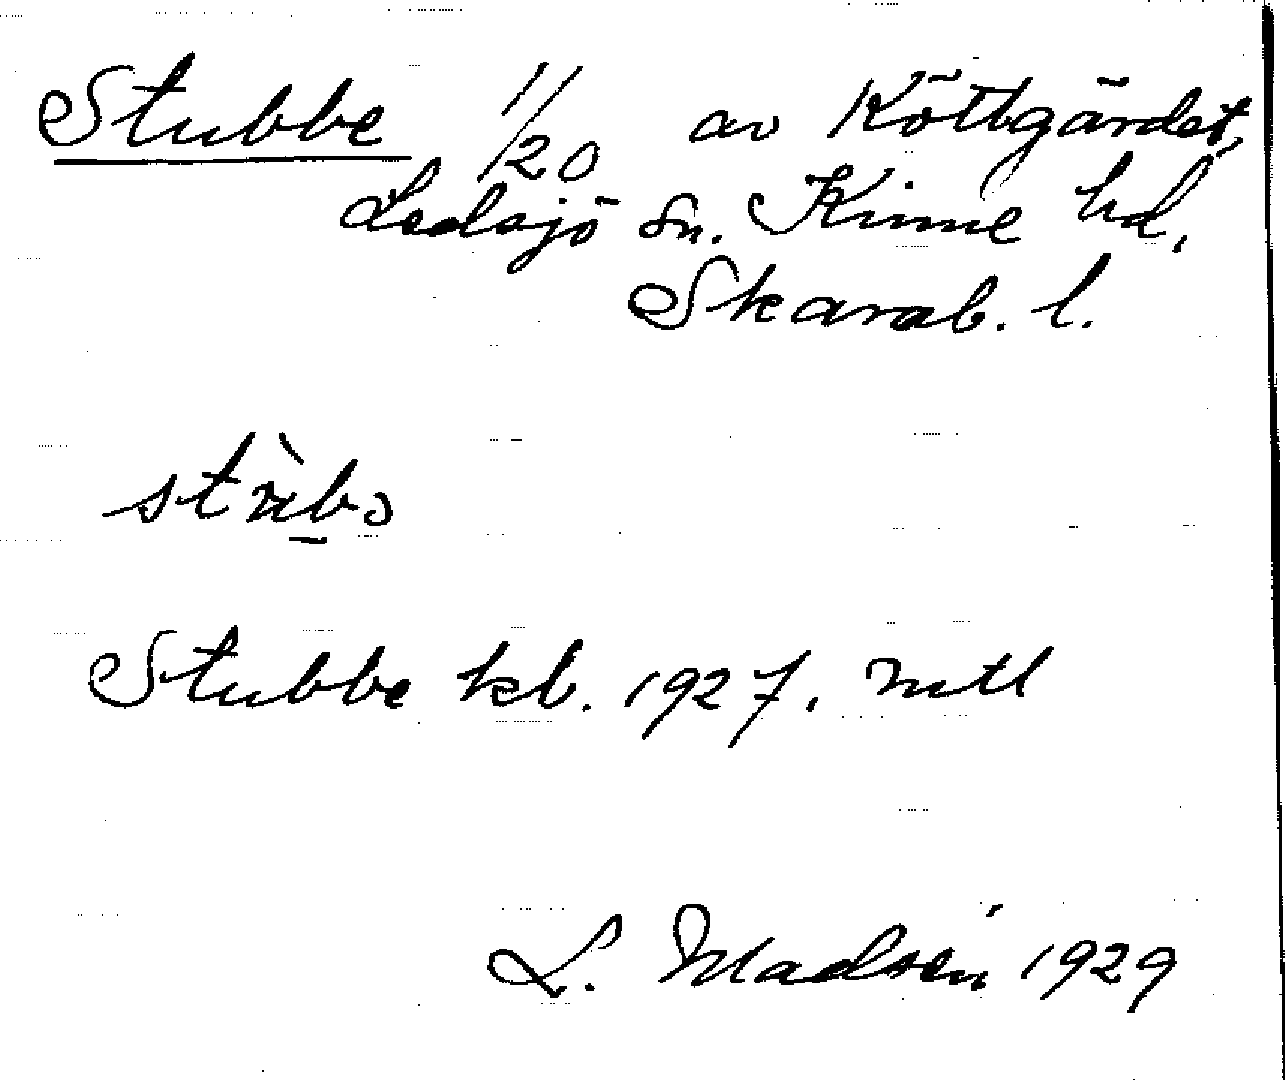 Stubbe 1/20 av Köttgärdet,
Ledsjö sn. Kinne hd,
Skarab. l.
Stubbe kb. 1927. mtl
L. Madsén 1929